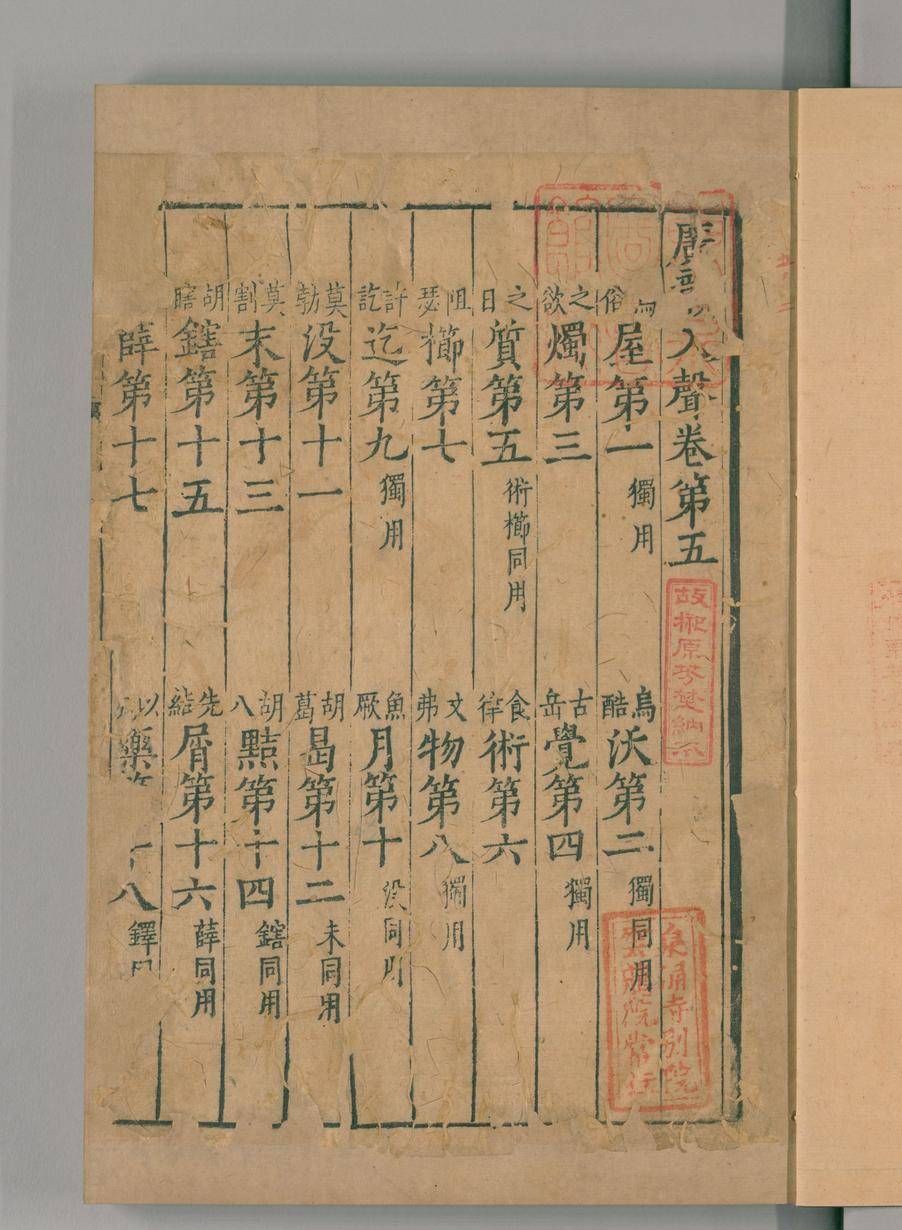 廣韻入聲卷第五
俗屋第一獨用 烏酷沃第二獨同用
之欲燭第三 古岳覺第四獨用
之日質第五術櫛同用 食律術第六
阻瑟櫛第七 文弗物第八獨用
許訖迄第九獨用 魚厥月第十没同用
莫勃没第十一 胡葛曷第十二末同用
莫割末第十三 胡八黠第十四鎋同用
胡瞎鎋第十五 先結屑第十六薛同用
薛第十七 以藥第十八鐸
故榊原芳埜納本